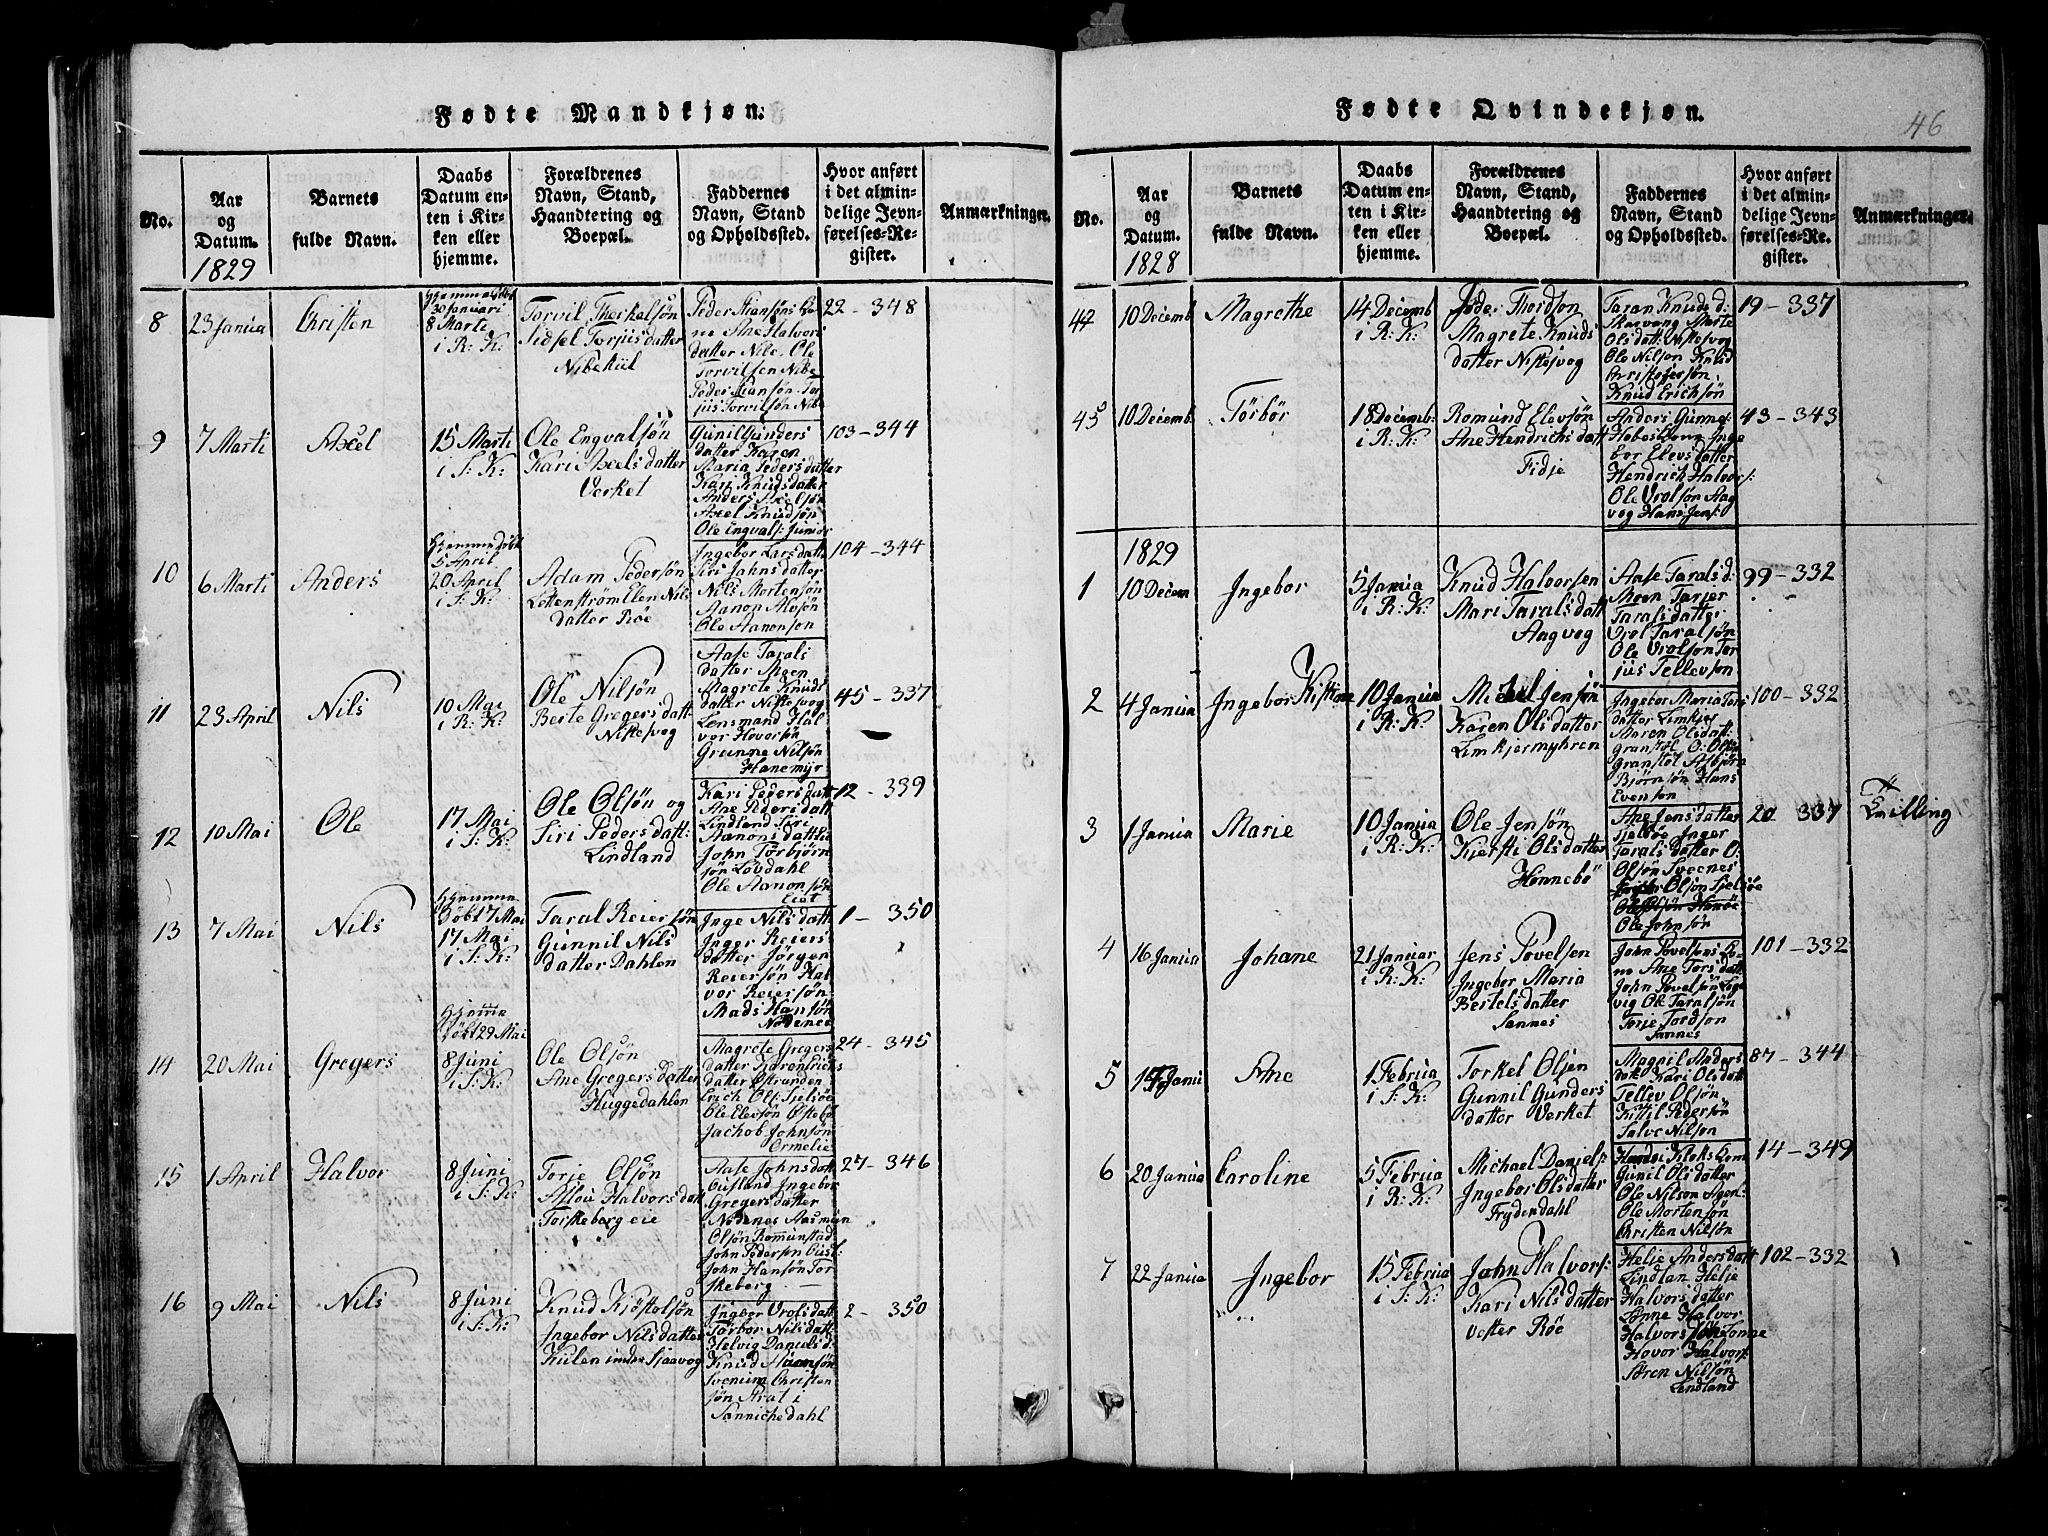 Fødte Mandkjøn.
No.
Aar
og
Datum.
1829
Barnets
fulde Navn.
Daabs
Datum en-
ten i Kir-
ken eller
hjemme.
Forældrenes
Navn, Stand,
Haandtering og
Boepæl.
Faddernes
Navn, Stand
og Opholdssted.
Hvor anført
i det almin-
delige Jevn-
førelses-Re-
gister.
Anmærkninger.
8
23 Janua
Christen
30 Januari
8 Marti
i R: K:
Torvil Therkelsøn
Sidsel Torjusdatter
Nibekiil
Ane Halvors
datter Nibe. Ole
Torvilsen Nibe
22 - 348
9
7 Marti
Axel
15 Marti
i S: K:
Ole Engvalsøn
Kari Axelsdatter
Verket
Gunil Gunders
datter Karen
Maria Pedersdatter
Kari Knudsdatter
Anders Axelsøn
Axel Knudsøn
Ole Engvals: Junior
103 - 344
10
6 Marti
Anders
Hjemmedøbt
5 April
20 April
i S: K:
Adam Pedersøn
Lottenstrøm Elen Nils
datter Røe
Ingebor Larsdatt:
Siri Jahnsdatter
Nils Mortensøn
Aanon
Ole Aanonsøn
104 - 344
11
23 April
Nils
10 Mai
i R: K:
Ole Nilsøn
Berte Gregersdatt:
Nistesvog
Aase Tarals
datter Moen
Magrete Knuds
datter Nistesvog
Lensmand Hal
vor Hovorsøn
Grunne Nilsøn
Hanemyr
45 - 337
12
10 Mai
Ole
17 Mai
i S: K:
Ole Olsøn og
Siri Pedersdatt:
Lindland
Kari Pedersdatt
Ane Pedersdatt
Lindland Siri
Aanonsdatt Lie
John Torbjørn
søn Løvdahl
Ole Aanonsøn
Eiet
12 - 339
13
7 Mai
Nils
Hjemme
Døbt 7 Mai
17 Mai
i S: K:
Taral Reiersøn
Gunnil Nils
datter Dahlen
Inge Nilsdatt:
Inger Reiers
datter Jørgen
Reiersøn Hal
vor Reiersøn
Mads Hansøn
Nødenes
1 - 350
14
20 Mai
Gregers
Hjemme
Døbt 29 Mai
8 Juni
i S: K:
Ole Olsøn
Ane Gregersdatter
Huggedahlen
Magrete Gregers
datter Karen Erichs
datter Ostranden
Erich Ols: Sjelsøe
Ole Elevsøn Østebø
Jachob Johnsøn
Ormelie
24 - 345
15
1 April
Halvor
8 Juni
i S: K:
Torje Olsøn
Aslou Halvorsdatt
Torskeberg eie
Aase Johnsdatt
Ousland Ingebor
Gregersdatter
Nødenes Aasmun
Olsøn Romunstad
John Pedersøn Ousl:
John Hansøn Tor
skeberg
27 - 346
16
9 Mai
Nils
8 Juni
i S: K:
Knud Kjøstelsøn
Ingebor Nilsdatter
Kiilen inder Sjaavog
Ingebor Vrolsdatt
Torbor Nilsdatt
Helvig Daniels d:
Knud Haansøn
Svenum Christen
søn Strat i
Sannichedahl
2 - 350
Fødte Qvindekjøn.
46
No.
Aar
og
Datum.
1828
Barnets
fulde Navn.
Daabs
Datum en-
ten i Kir-
ken eller
hjemme.
Forældrenes
Navn, Stand,
Haandtering og
Boepæl.
Faddernes
Navn, Stand
og Opholdssted.
Hvor anført
i det almin-
delige Jevn-
førelses-Re-
gister.
Anmærkninger.
44
10 Decemb
Magrethe
14 Decemb
i R: K:
Peder Thordson
Magrete Knuds
datter Nistesvog
Taran Knuds d:
Skarvang Marte
Olsdatt: Nistesvog
Ole Nilson Knud
Christofersøn
Knud Erichsøn
19 - 337
45
10 Decemb
Torbør
18 Decemb:
i R: K:
Romund Elevsøn
Ane Hendrichsdatt
Fidje
Anders Gunne:
Inge
bor Elevsdatter
Hendrich Halvors:
Ole Vrolsøn Aag
vog Hans Jens:
43 - 343
1829
1
10 Decem
Ingebor
5 Janua
i R: K:
Knud Halvorsen
Mari Taralsdatt
Aagvog
Aase Tarals d:
Moen Tarjer
Taralsdatter
Vrol Taralsøn
Ole Vrolsøn Tor
jus Tellevsøn
99 - 332
2
4 Janua
Ingebor Kistine
10 Janua
i R: K:
Michel Jensøn
Karen Olsdatter
Limkjermyhren
Ingebor Maria Tors
datter Limkjer
Maren Olsdatt:
Granstøl O: Olsøn
Granstøl Asbjørn
Bjørnsøn Hans
Evenson
100 - 332
3
1 Janua
Marie
10 Janua
i R: K:
Ole Jensøn
Kjersti Olsdatter
Hønnebø
Ane Jensdatter
Sjelsøe Inger
Taralsdatter O:
Olsøn Sveenes
Olsøn Sjelsøe
Ole Johnsøn
20 337
Tvilling
4
16 Janua
Johane
21 Januar
i R: K:
Jens Povelsen
Ingebor Maria
Bertelsdatter
Sannes
John Povelsøns Ko-
ne Ane Torsdatt
John Povelsøn Lage
vig Ole Taralsøn
Torje Tordson
Sannes
101 - 332
5
14 Janu
Ane
1 Februa
i S: K:
Torkel Olsen
Gunnil Gunders
datter Verket
Magnil Anders
datt: Kari Olsdatt:
Tellev Olsøn
Kittil Pedersøn
Salve Nilson
87 - 344
6
20 Janua
Caroline
5 Februa
i R: K:
Michael Daniels:
Ingebor Olsdatter
Frydendahl
Gunil Olsdatter
Ole Nilson Agen:
Ole Mortensøn
Christen Nilsøn
14 - 349
7
22 Janua
Ingebor
15 Februa
i S: K:
John Halvors:
Kari Nilsdatter
Vester Røe
Helje Andersdatt
Lindlan Helje
Halvorsdatter
Lønne Halvor
Halvorsøn Lønne
Hovor Halvors:
Søren Nilsøn
Lindland
102 - 332